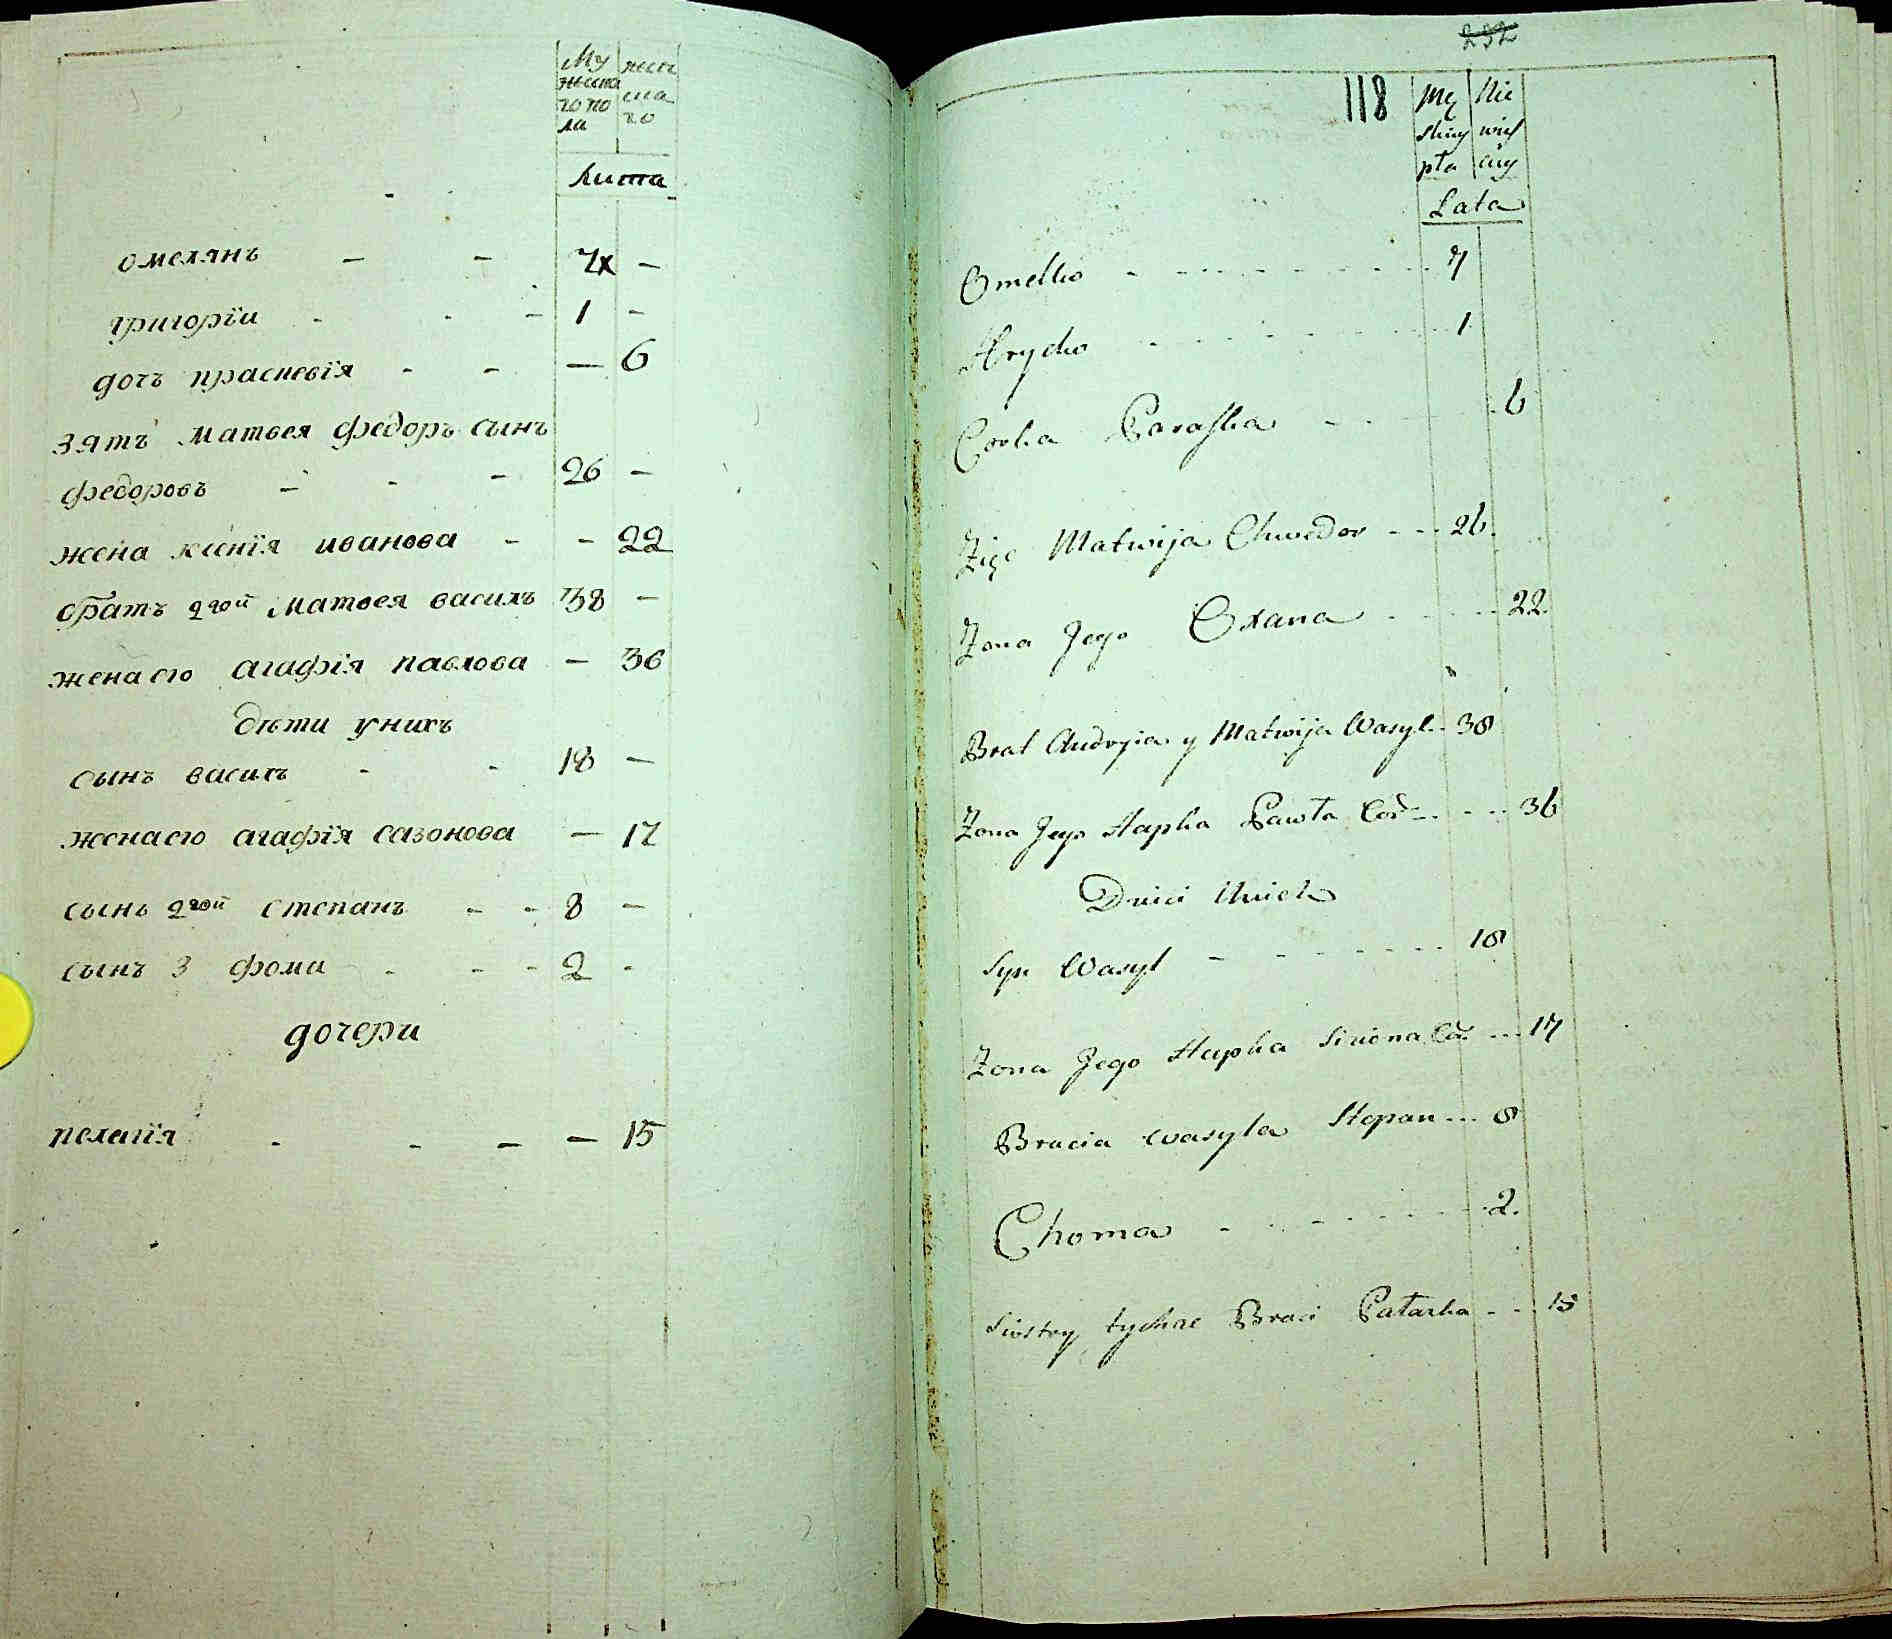 Му женс
жеска ска
го по го
ла
Лѣта
омелянъ - - 7x -
григорїи - - - 1 -
дочъ прасковїя - - - 6
зятъ матвея федоръ сынъ
федоровъ - - - 26 -
жена ксенїя иванова - - 22
братъ 2гой матвея василъ 38 -
жена его агафїя павлова - 36
дѣти у нихъ
сынъ василъ - - 18 -
жена его агафїя сазонова - 17
сынъ 2гой степанъ - - 8 -
сынъ 3 фома - - - 2 -
дочери
пелагїя - - - - 15
232
118
Mę Nie
skiey wies
płci ciey
Lata
Omelko - - - - 7
Hrycko - - - - 1
Corka Paraska - - - 6
Zięc Matwija Chwedor - - - 26
Zona Jego Oxana - - - 22
Brat Andryia y Matwija Wasyl - - 38
Zona Jego Hapka Pawła Cor - - - 36
Dzieci Unich
Syn Wasyl - - - - 18
Zona Jego Hapka Siziona Co - - - 17
Bracia Wasyla Stepan - - - 8
Choma - - - - 2
Siostry tychze Braci Pałazka - - - 15